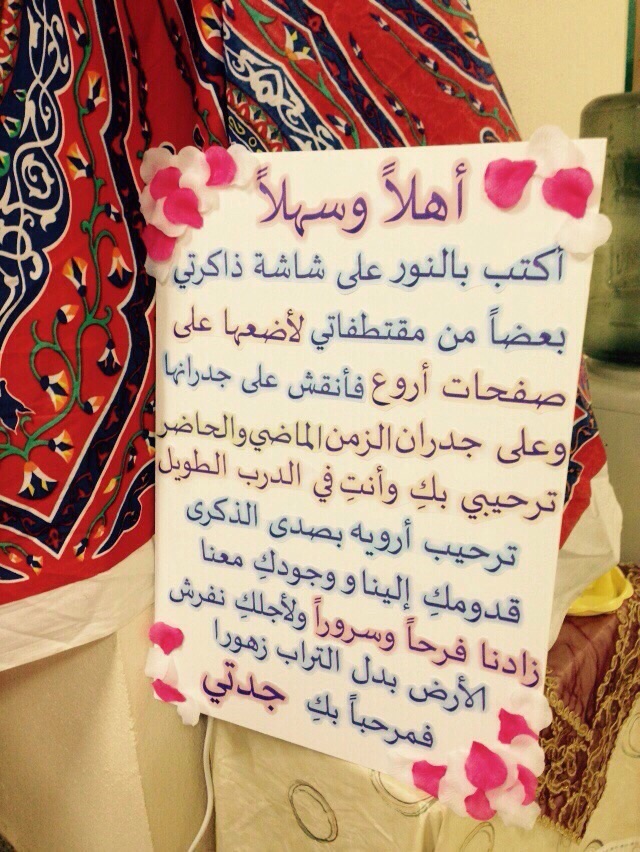 أهلاً وسهلاً
أكتب بالنور على شاشة ذاكرتي
بعضاً من مقتطفاتي لأضعها على
صفحات أروع فأنقش على جدرانها
وعلى جدران الزمن الماضي والحاضر
ترحيبي بكِ وأنتِ في الدرب الطويل
ترحيب أرويه بصدى الذكرى
قدومكِ إلينا و وجودكِ معنا
زادنا فرحاً وسروراً ولأجلكِ نفرش
الأرض بدل التراب زهورا
فمرحباً بكِ جدتي